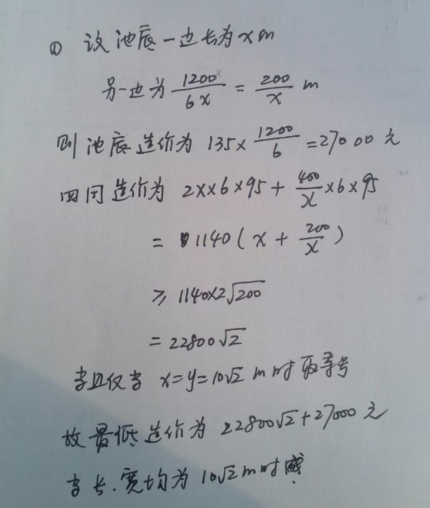 ① 设池底一边长为xm
另一边为 1200/6x = 200/x m
则池底造价为 135× 1200/6 =27000元
四周造价为 2x×6×95+ 400/x ×6×95
= 1140(x + 200/x)
≥ 1140×2√200
= 22800√2
当且仅当 x=y=10√2 m时取等号
故最低造价为 22800√2+27000元
当长.宽均为10√2m时